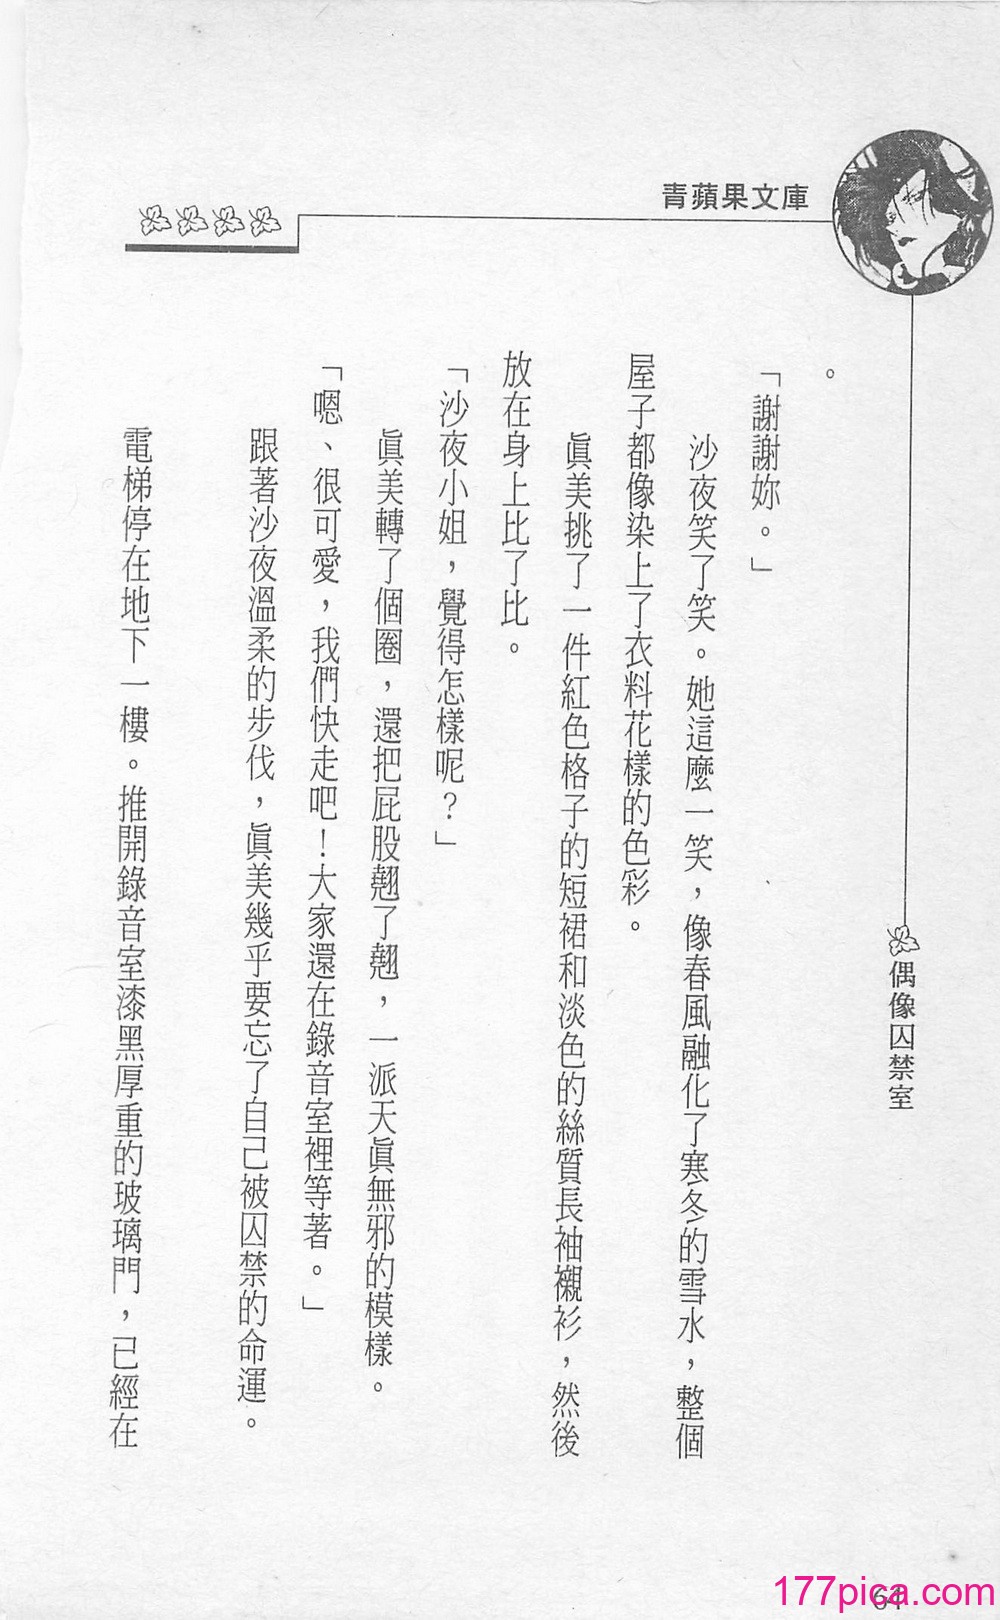 青蘋果文庫
偶像囚禁室
。
「謝謝妳。」
沙夜笑了笑。她這麼一笑，像春風融化了寒冬的雪水，整個
屋子都像染上了衣料花樣的色彩。
眞美挑了一件紅色格子的短裙和淡色的絲質長袖襯衫，然後
放在身上比了比。
「沙夜小姐，覺得怎樣呢？」
眞美轉了個圈，還把屁股翹了翹，一派天眞無邪的模樣。
「嗯、很可愛，我們快走吧！大家還在錄音室裡等著。」
跟著沙夜溫柔的步伐，眞美幾乎要忘了自己被囚禁的命運。
電梯停在地下一樓。推開錄音室漆黑厚重的玻璃門，已經在
64
177pica.com